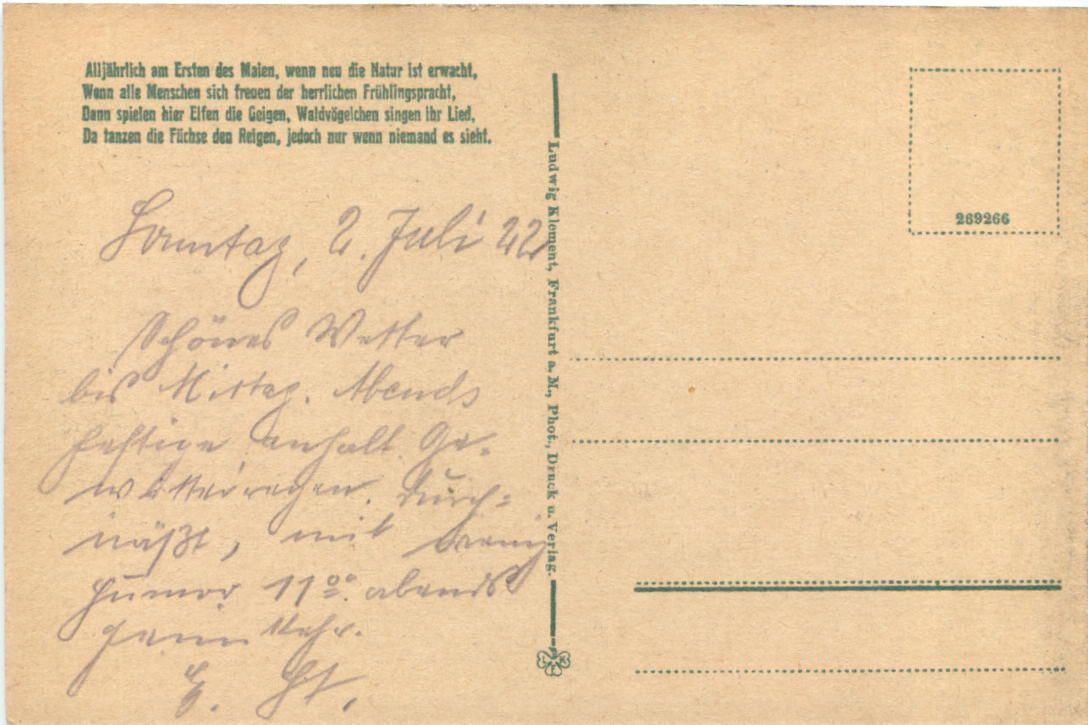 Alljährlich am Ersten des Maien, wenn neu die Natur ist erwacht,
Wenn alle Menschen sich freuen der herrlichen Frühlingspracht,
Dann spielen hier Elfen die Geigen, Waldvögelchen singen ihr Lied,
Da tanzen die Füchse den Reigen, jedoch nur wenn niemand es sieht.
Sonntag, 2. Juli 22
Schönes Wetter
bis Mittag. Abends
heftige anhalt. Ge-
witterregen. Durch-
näßt, mit wenig
Humor 11⁰⁰ abends
heim
E. St.
Ludwig Klement, Frankfurt a. M., Phot., Druck u. Verlag.
269266